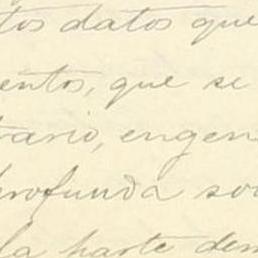 tos datos que
entos, que se
trario, engen
profunda so
la parte dem